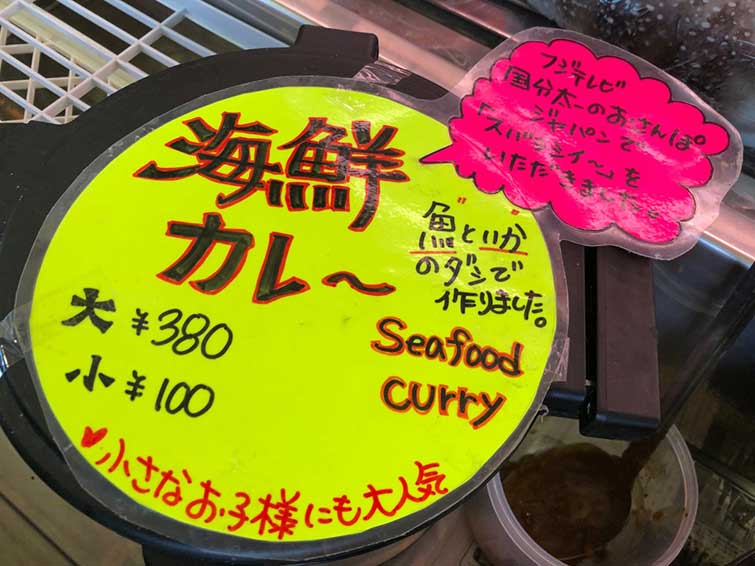 海鮮
カレ〜
大 ¥380
小 ¥100
魚"と"いか
のダシで
作りました。
Seafood
curry
♥小さなお子様にも大人気
フジテレビ
国分太一のおさんぽ。
ジャパンで
「スバラシイ〜」を
いただきました。